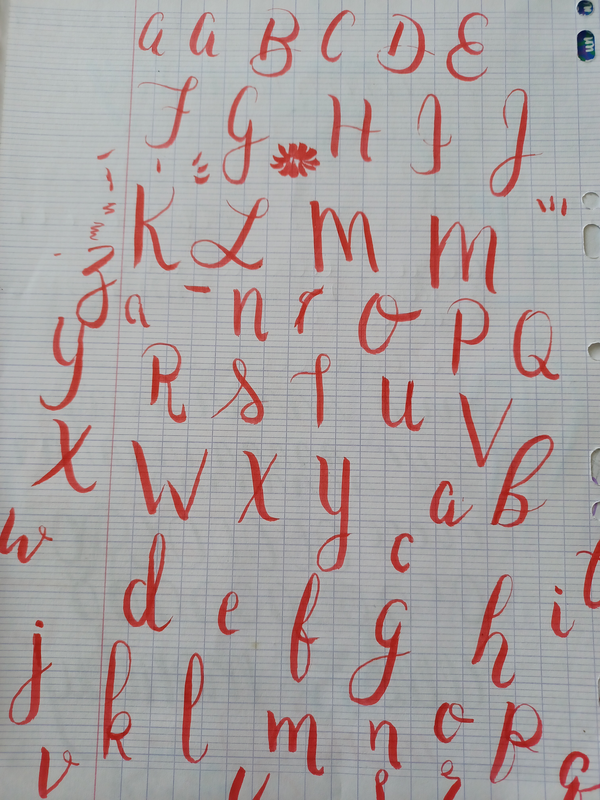 a a B C D E
F G H I J
K L M M
z a n r O P Q
y R S T U V
X W X y a B
w c
d e f g h i t
j k l m n o p q
v